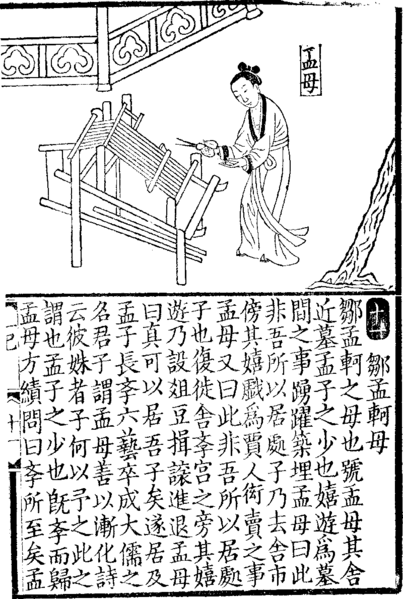 孟母
十一 鄒孟軻母
鄒孟軻之母也號孟母其舍
近墓孟子之少也嬉遊爲墓
間之事踴躍築埋孟母曰此
非吾所以居處子乃去舍市
傍其嬉戲爲賈人衒賣之事
孟母又曰此非吾所以居處
子也復徙舍斈宮之旁其嬉
遊乃設俎豆揖讓進退孟母
曰真可以居吾子矣遂居及
孟子長斈六藝卒成大儒之
名君子謂孟母善以漸化詩
云彼姝者子何以予之此之
謂也孟子之少也旣斈而歸
孟母方績問曰斈所至矣孟